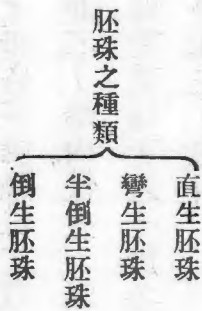 胚珠之種類
直生胚珠
彎生胚珠
半倒生胚珠
倒生胚珠